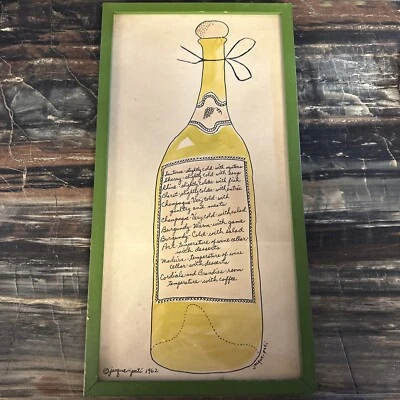 Sauterne - slightly cold with oysters
Sherry - slightly cold with soup
Rhine - slightly colder with fish
Claret slightly colder with entrée
Champagne Very cold with
poultry and meats
Champagne Very cold with salad
Burgundy - Warm with game
Burgundy - Cold with salad
Port - temperature of wine cellar
with desserts
Madeira - temperature of wine
cellar with desserts
Cordials and Brandies - room
temperature with coffee
© 1962